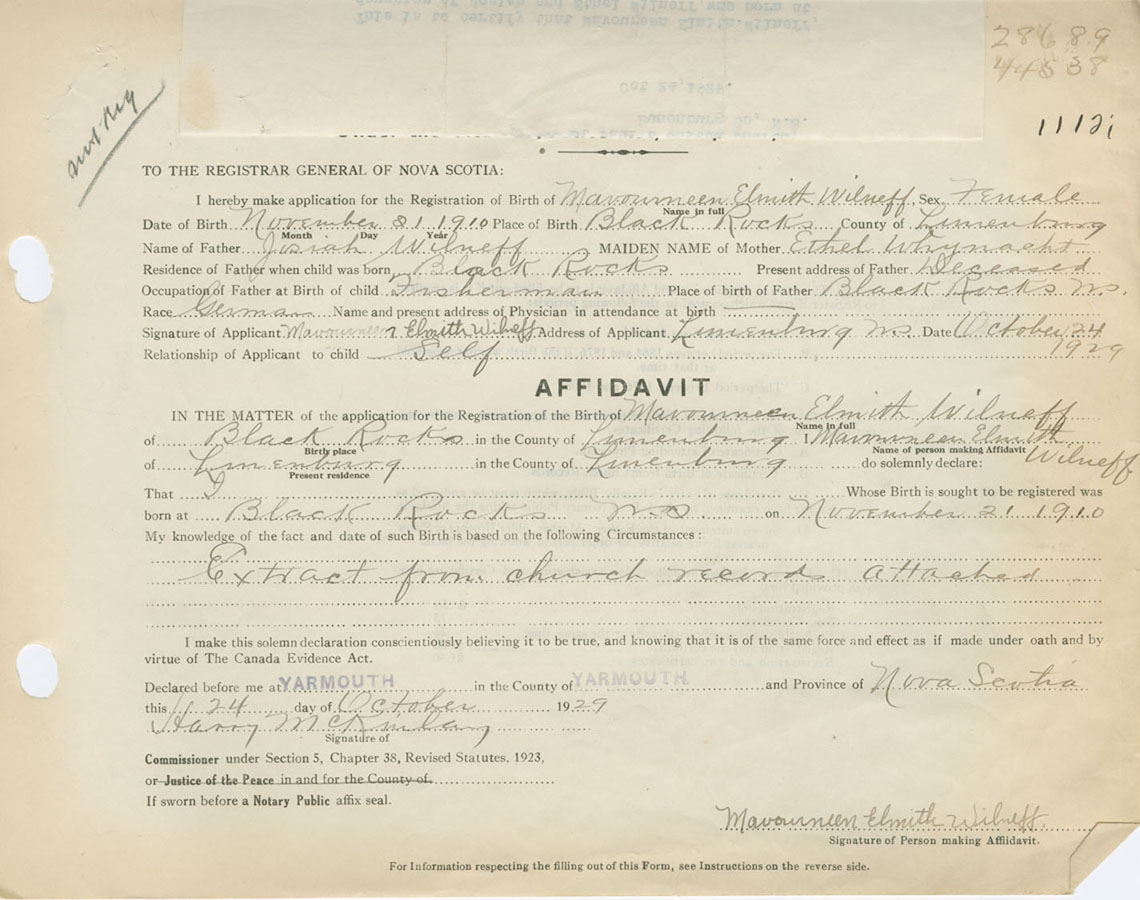 28689
44538
1112i
TO THE REGISTRAR GENERAL OF NOVA SCOTIA:
I hereby make application for the Registration of Birth of Mavourneen Elmith Wilneff Sex Female
Name in full
Date of Birth November 21 1910 Place of Birth Black Rocks County of Lunenburg
Month Day Year
Name of Father Josiah Wilneff MAIDEN NAME of Mother Ethel Whynacht
Residence of Father when child was born Black Rocks Present address of Father Deceased
Occupation of Father at Birth of child Fisherman Place of birth of Father Black Rocks N.S.
Race German Name and present address of Physician in attendance at birth
Signature of Applicant Mavourneen Elmith Wilneff Address of Applicant Lunenburg N.S. Date October 24
1929
Relationship of Applicant to child Self
AFFIDAVIT
IN THE MATTER of the application for the Registration of the Birth of Mavourneen Elmith Wilneff
Name in full
of Black Rocks in the County of Lunenburg I Mavourneen Elmith
Birth place Name of person making Affidavit
of Lunenburg in the County of Lunenburg do solemnly declare: Wilneff
Present residence
That I Whose Birth is sought to be registered was
born at Black Rocks N.S on November 21 1910
My knowledge of the fact and date of such Birth is based on the following Circumstances:
Extract from church records attached
I make this solemn declaration conscientiously believing it to be true, and knowing that it is of the same force and effect as if made under oath and by
virtue of The Canada Evidence Act.
Declared before me at YARMOUTH in the County of YARMOUTH and Province of Nova Scotia
this 24 day of October 1929
Harry
Signature of
Commissioner under Section 5, Chapter 38, Revised Statutes, 1923,
or Justice of the Peace in and for the County of
If sworn before a Notary Public affix seal.
Mavourneen Elmith Wilneff
Signature of Person making Affidavit.
For Information respecting the filling out of this Form, see Instructions on the reverse side.